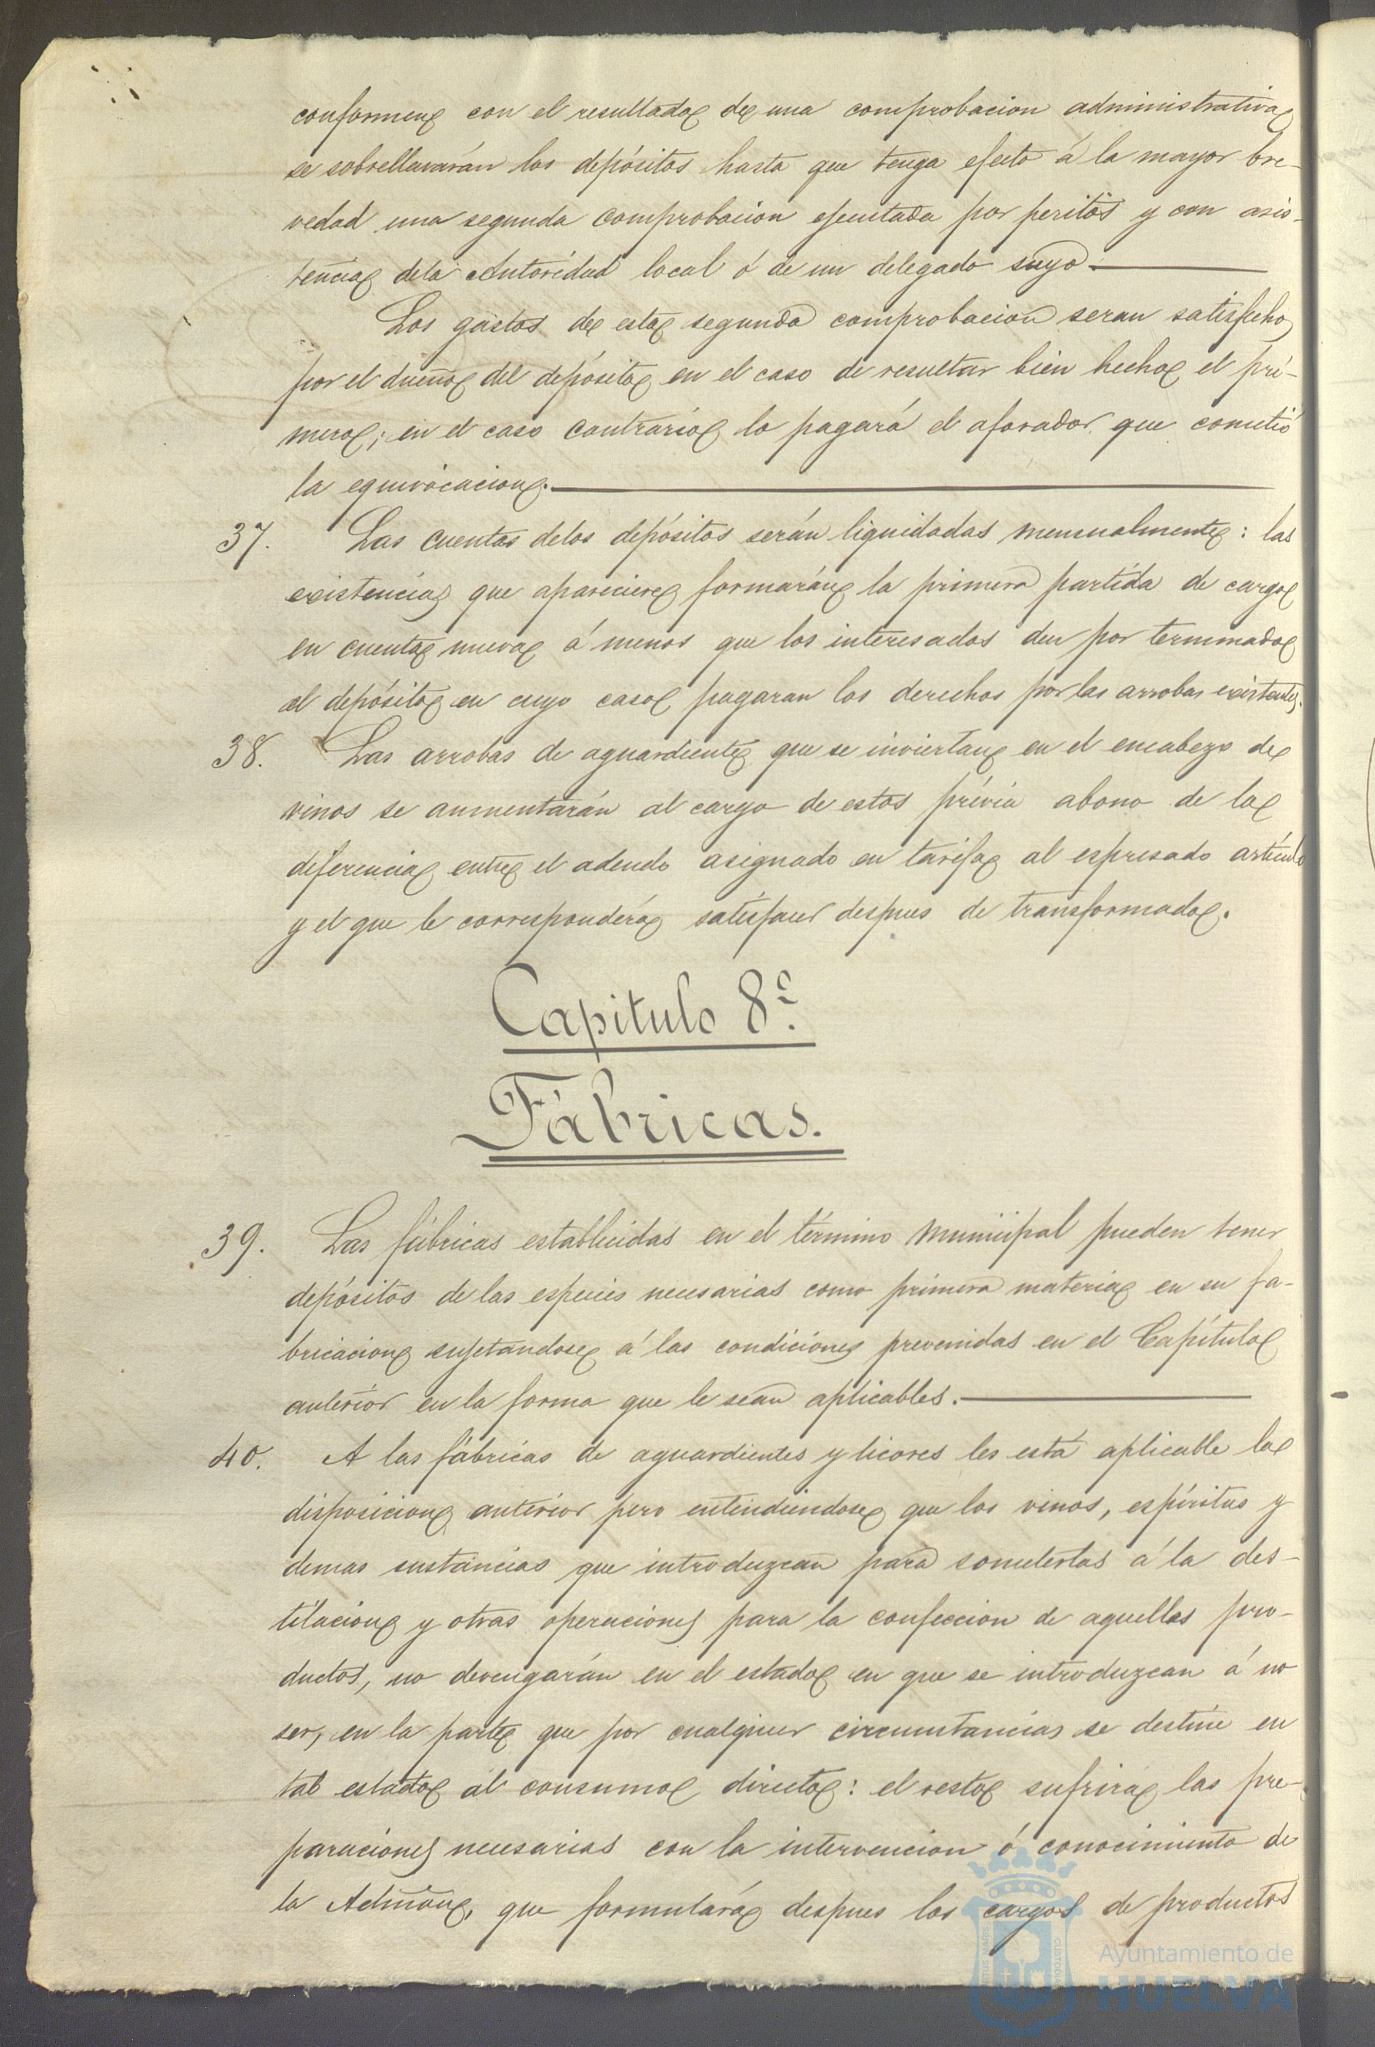 conformen con el resultado de una comprobacion administrativa
se sobrellavarán los depósitos hasta que tenga efecto á la mayor bre-
vedad una segunda comprobacion ejecutada por peritos y con asis-
tencia de la Autoridad local ó de un delegado suyo.
Los gastos de esta segunda comprobacion seran satisfechos
por el dueño del depósito en el caso de resultar bien hecho el pri-
mero; en el caso contrario lo pagará el aforador que cometió
la equivocacion.
37. Las cuentas de los depósitos serán liquidadas mensualmente: las
existencias que apareciere formarán la primera partida de cargo
en cuenta nueva á menos que los interesados den por terminado
el depósito en cuyo caso pagaran los derechos por las arrobas existentes.
38. Las arrobas de aguardiente que se inviertan en el encabezo de
vinos se aumentarán al cargo de estos prévia abono de la
diferencia entre el adeudo asignado en tarifa al espresado artículo
y el que le corresponderá satisfacer despues de transformado.
Capitulo 8º.
Fábricas.
39. Las fábricas establecidas en el término municipal pueden tener
depósitos de las especies necesarias como primera materia en su fa-
bricacion sujetandose á las condiciones prevenidas en el Capítulo
anterior en la forma que le sean aplicables.
40. A las fábricas de aguardientes y licores les está aplicable la
disposicion anterior pero entendiendose que los vinos, espíritus y
demas sustancias que introduzcan para someterlas á la des-
tilacion y otras operaciones para la confeccion de aquellos pro-
ductos, no devengarán en el estado en que se introduzcan á no
ser, en la parte que por cualquier circunstancias se destine en
tal estado al consumo directo: el resto sufrirá las pre-
paraciones necesarias con la intervencion ó conocimiento de
la Admon, que formulará despues los cargos de productos
Ayuntamiento de
HUELVA